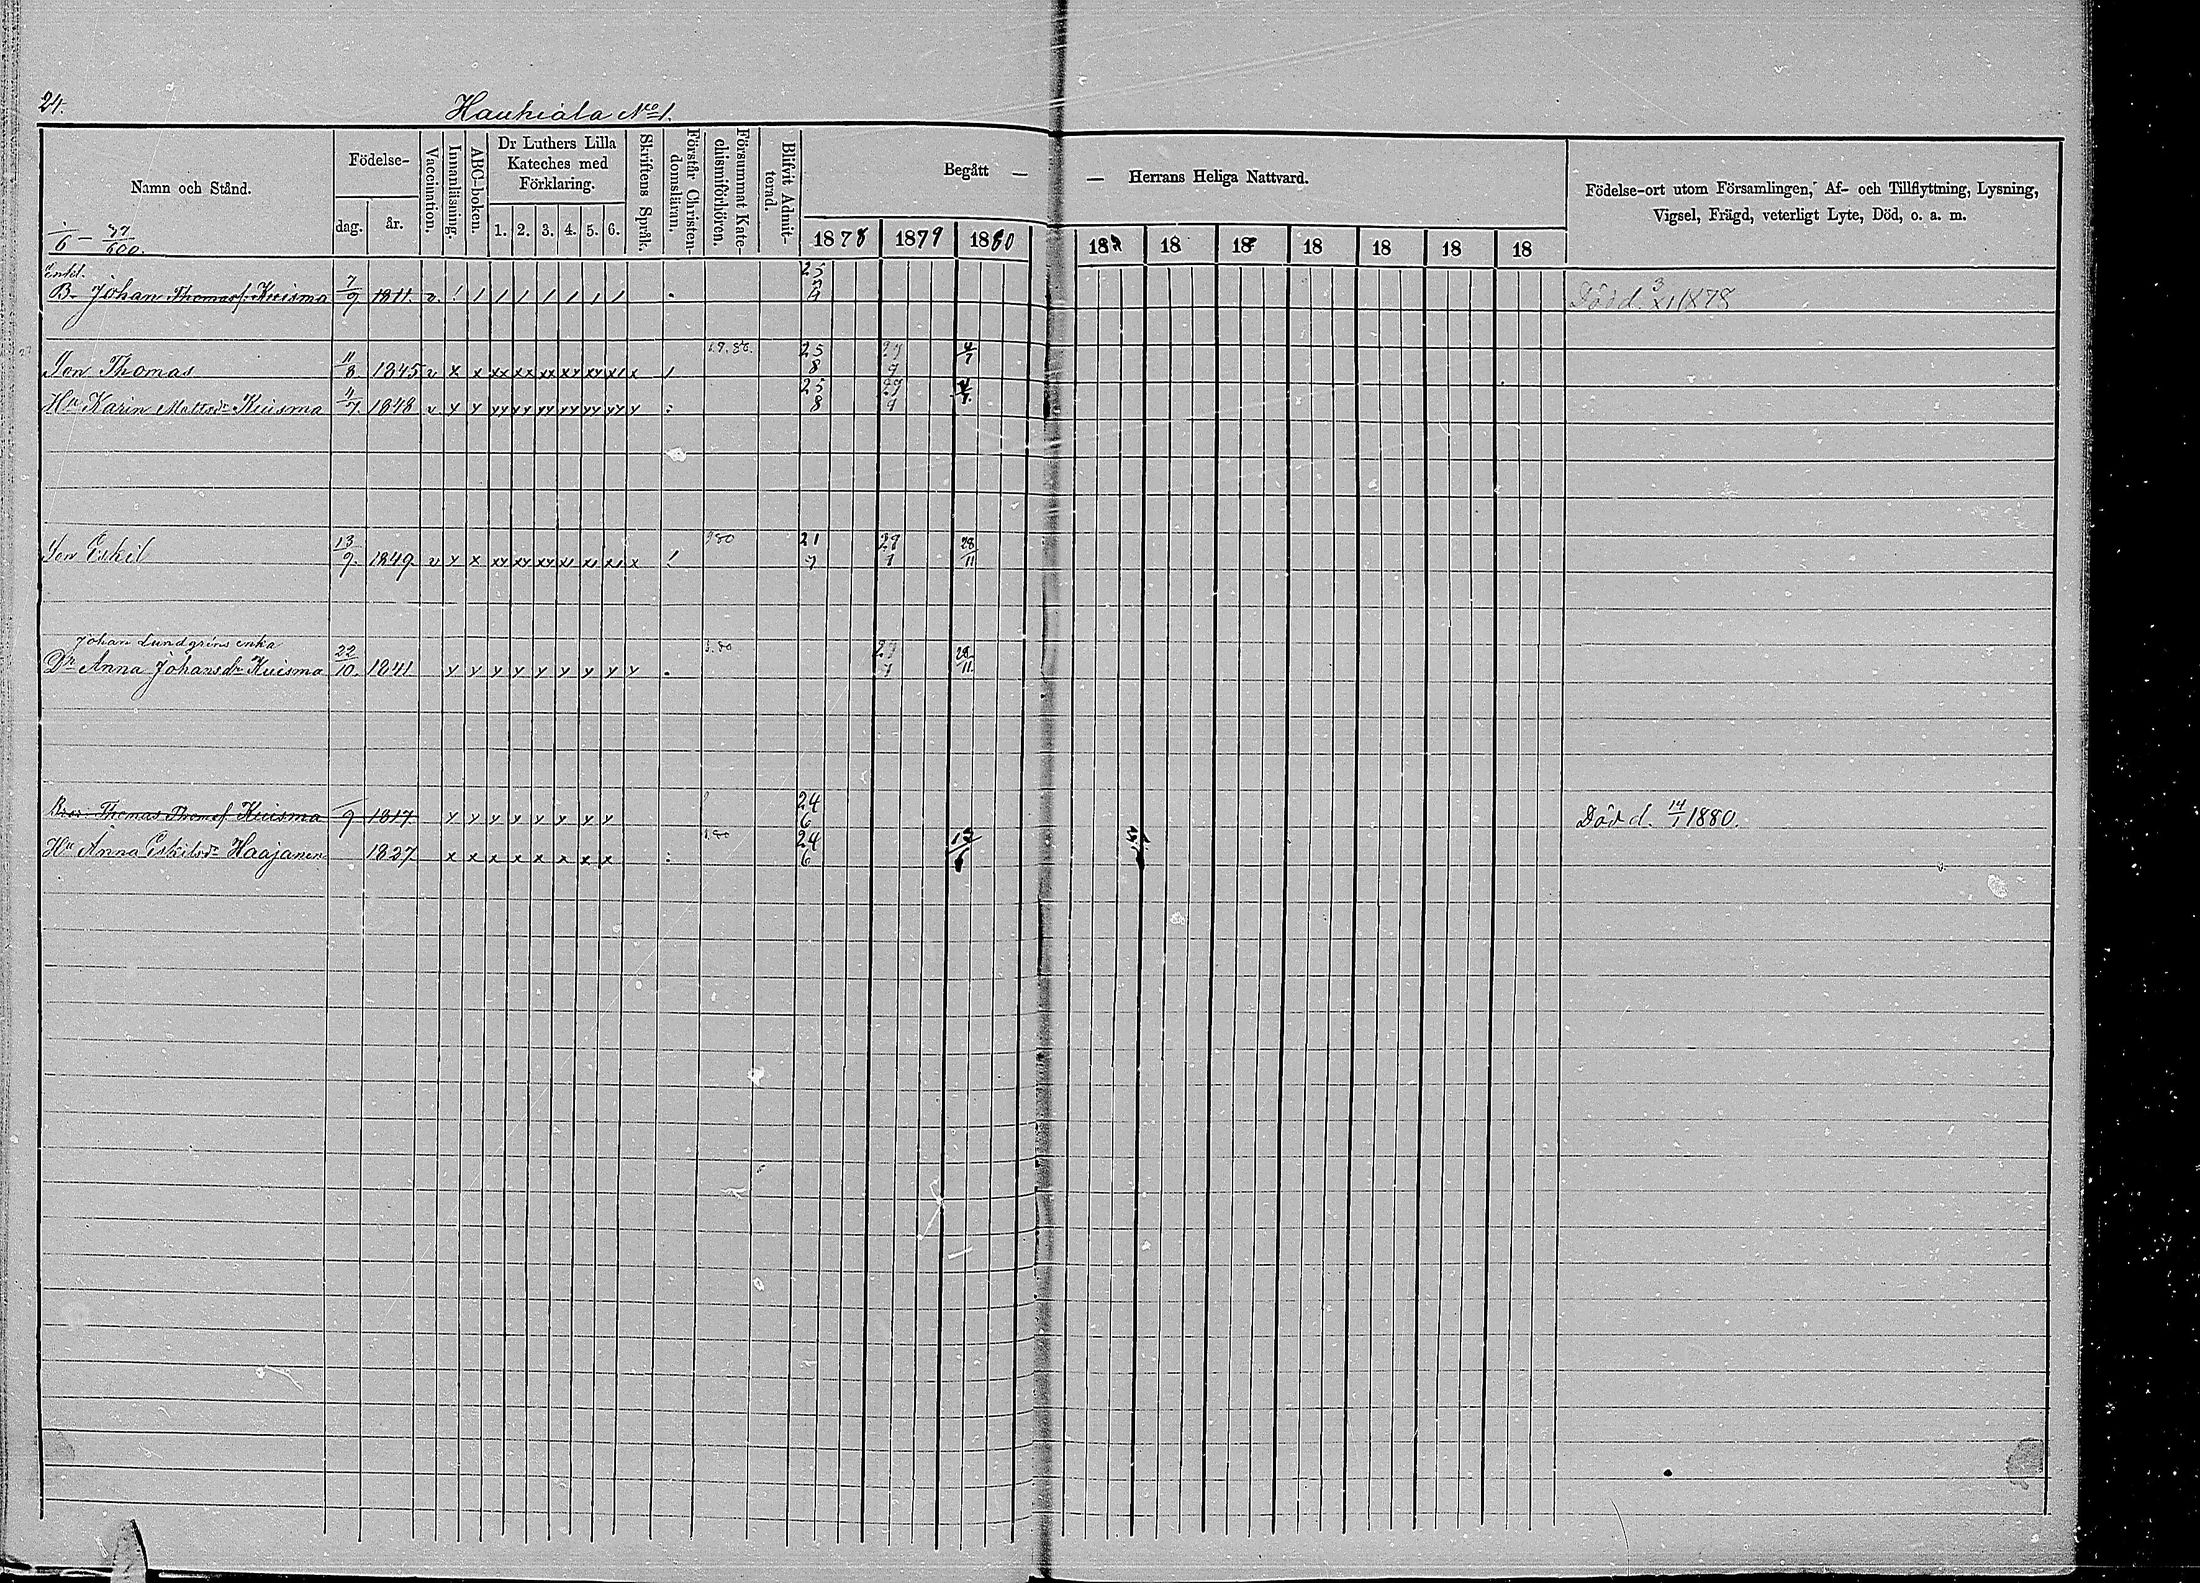 24.
Hauhiala No 1.
Namn och Stånd.
Födelse-
dag. år.
Vaccination.
Innanläsning.
ABC-boken.
Dr Luthers Lilla Kateches med Förklaring.
1. 2. 3. 4. 5. 6.
Skriftens Språk.
Förstår Christendomsläran.
Försummat Katechismiförhören.
Blifvit Admitterad.
Begått — — Herrans Heliga Nattvard.
1878 1879 1880 18 18 18 18 18 18 18
Födelse-ort utom Församlingen, Af- och Tillflyttning, Lysning,
Vigsel, Frägd, veterligt Lyte, Död, o. a. m.
Enkl.
B. Johan Thomasf. Kuisma 7/9 1811. v. 25/4 Död d. 3/XI 1878
Son Thomas 11/8 1845 v x x xx xx xx xy xy x1 x 1 25/8 4/7
Hu Karin Mattsdr Kuisma 11/7 1848 v y y yy yy yy yy yy yy y : 25/8 4/7
Son Eskil 13/9. 1849. v y x xy xy xy x1 x1 x1 x ! 21/7 28/11
Johan Lundgrins enka
Dr Anna Johansdr Kuisma 22/10. 1841 y y y y y y y y y 28/11
Bror Thomas Thomsf Kuisma /9 1817 y y y y y y y y 24/6 Död d. 14/1 1880.
Hu Anna Eskilsdr Haajanen 1827 x x x x x x x x : 24/6